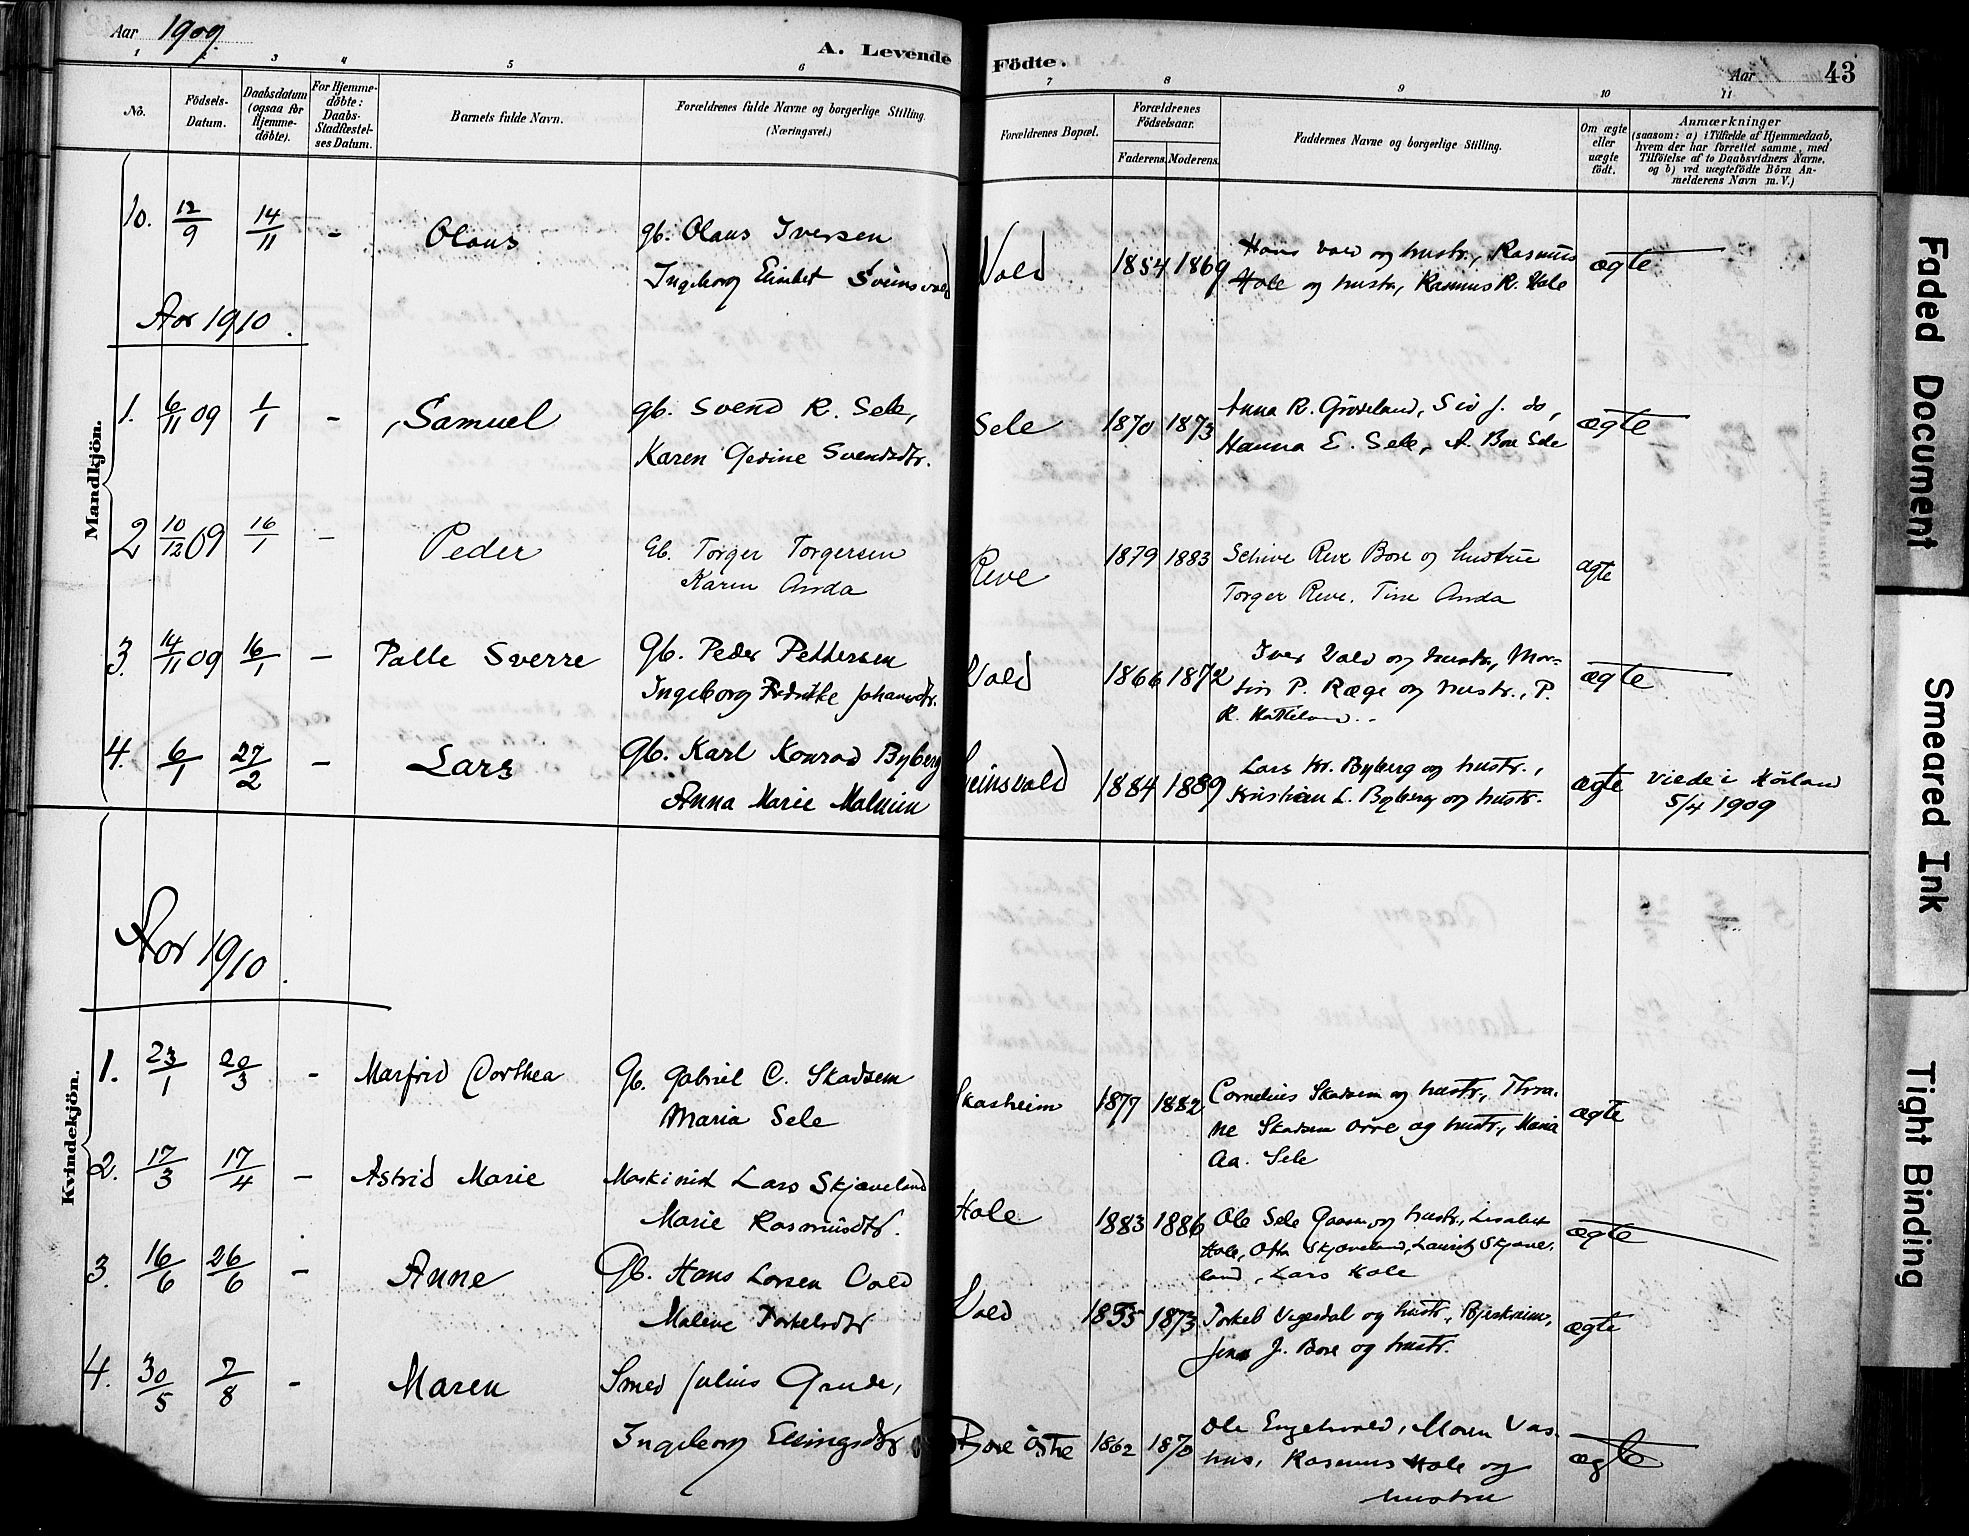 Aar 1909.
A. Levende Födte.
Aar 43
1 2 3 4 5 6 7 8 9 10 11
No.
Födsels-Datum.
Daabsdatum (ogsaa for Hjemme-döbte).
For Hjemme-döbte: Daabs-Stadfæstel-ses Datum.
Barnets fulde Navn.
Forældrenes fulde Navne og borgerlige Stilling. (Næringsvei.)
Forældrenes Bopæl.
Forældrenes Födselsaar.
Faderens. Moderens.
Faddernes Navne og borgerlige Stilling.
Om ægte eller uægte födt.
Anmærkninger
(saasom: a) i Tilfælde af Hjemmedaab,
hvem der har forrettet samme, med
Tilföielse af to Daabsvidners Navne,
og b) ved uægtefödte Börn An-
melderens Navn m. V.)
10. 12/9 14/11 - Olaus gb. Olaus Iversen Vold 1854 1869 Hans Vold og hustr., Rasmus ægte
Ingeborg Elisabet Sveinsvold Hole og hustr, Rasmus R. Hole
Aar 1910.
Mandkjön.
1. 6/11 09 1/1 - Samuel gb. Svend R. Sele, Sele 1870 1873 Anna R. Gröseland, Siv J. do, ægte
Karen Gesine Svendsdtr. Hanna E. Sele, A. Bore Sele
2 10/12 09 16/1 - Peder Gb. Torger Torgersen Reve 1879 1883 Schive Reve Bore og hustrue ægte
Karen Anda Torger Reve. Tine Anda
3. 14/11 09 16/1 - Palle Sverre Gb. Peder Pettersen Vold 1866 1872 Iver Vold og hustr, Mor- ægte
Ingeborg Fredrikke Johansdtr. tin P. Ræge og hustr., P.
R. Hatteland.
4. 6/1 27/2 - Lars Gb. Karl Konrad Byberg Sveinsvold 1884 1889 Lars Kr. Byberg og hustr., ægte viede i Höiland
Anna Marie Malmin Kristian L. Byberg og hustr. 5/4 1909
Aar 1910.
Kvindekjön.
1. 23/1 20/3 - Marfrid Dorthea Gb. Gabriel C. Skadsem Skasheim 1877 1882 Cornelius Skadsem og hustr., Thro- ægte
Maria Sele ne Skadsem Orre og hustr, Maria
Aa. Sele
2. 17/3 17/4 - Astrid Marie Maskinist Lars Skjæveland Hole 1883 1886 Ole Sele og hustr., Lisabet ægte
Marie Rasmusdtr. Hole, Otta Skjæveland, Lauritz Skjæve-
land, Lars Hole
3. 16/6 26/6 - Anne Gb. Hans Larsen Vold Vold 1855 1873 Torkel Vegesdal og hustr., Bjerkreim, ægte
Malene Torkelsdtr Jens J. Bore og hustr.
4. 30/5 7/8 - Maren Smed Julius Grude, Bore östre 1862 1870 Ole Engelsvold, Maren Vas- ægte
Ingeborg Ellingsdtr hus, Rasmus Hole og
hustru
Faded Document
Smeared Ink
Tight Binding